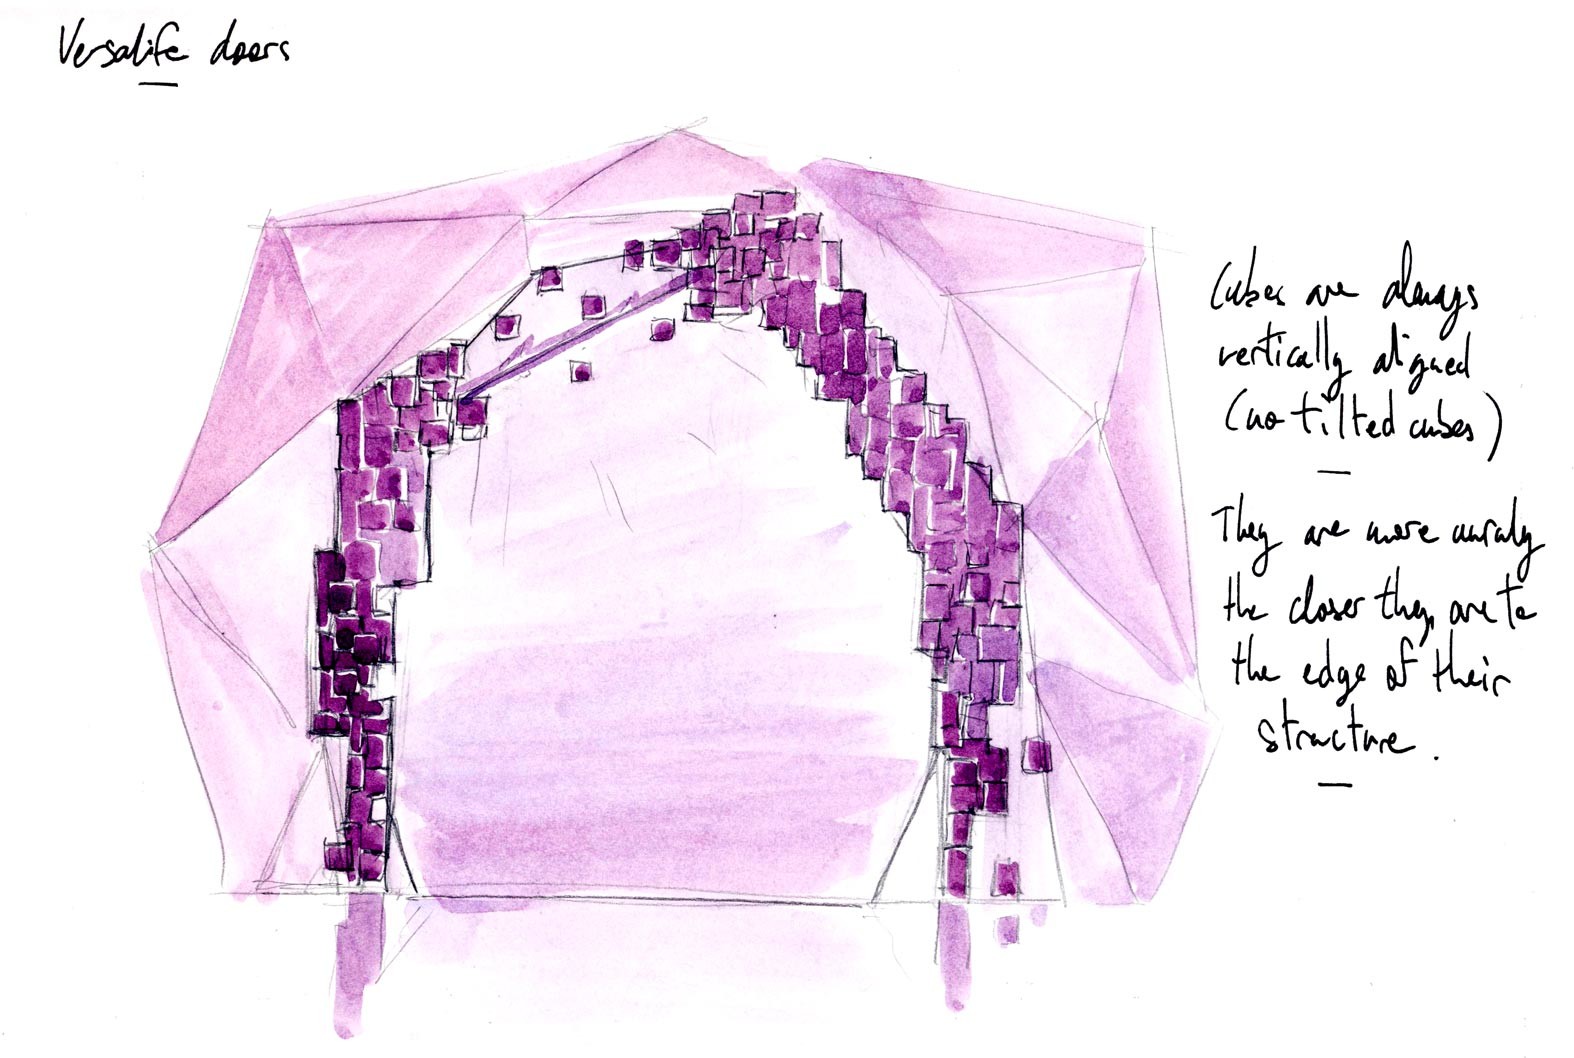 Versalife doors
Cubes are always
vertically aligned
(no tilted cubes)
They are more unruly
the closer they are to
the edge of their
structure.